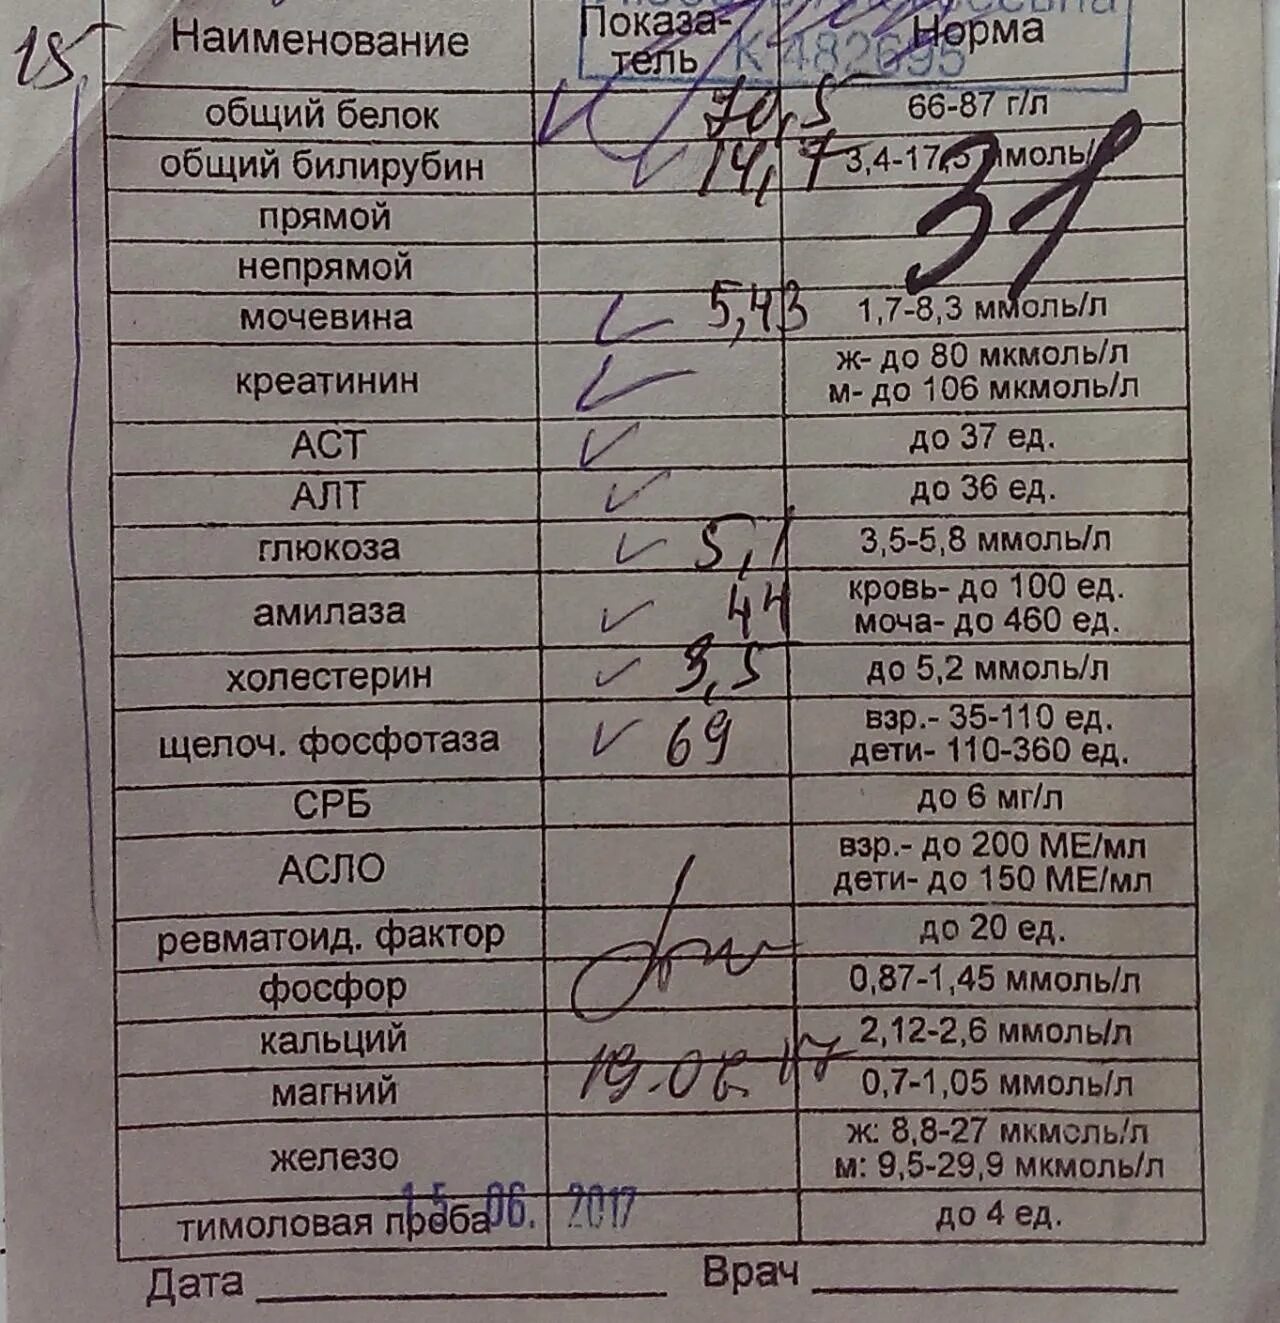 15
Наименование Показа-тель Норма
К 482695
общий белок 70,5 66-87 г/л
общий билирубин 14,7 3,4-17,5 ммоль/
31
прямой
непрямой
мочевина 5,43 1,7-8,3 ммоль/л
креатинин ж- до 80 мкмоль/л
м- до 106 мкмоль/л
АСТ до 37 ед.
АЛТ до 36 ед.
глюкоза 5,1 3,5-5,8 ммоль/л
амилаза 44 кровь- до 100 ед.
моча- до 460 ед.
холестерин 3,5 до 5,2 ммоль/л
щелоч. фосфотаза 69 взр.- 35-110 ед.
дети- 110-360 ед.
СРБ до 6 мг/л
АСЛО взр.- до 200 МЕ/мл
дети- до 150 МЕ/мл
ревматоид. фактор до 20 ед.
фосфор 0,87-1,45 ммоль/л
кальций 2,12-2,6 ммоль/л
19.06.17
магний 0,7-1,05 ммоль/л
железо ж: 8,8-27 мкмоль/л
м: 9,5-29,9 мкмоль/л
15 06. 2017
тимоловая проба до 4 ед.
Дата Врач